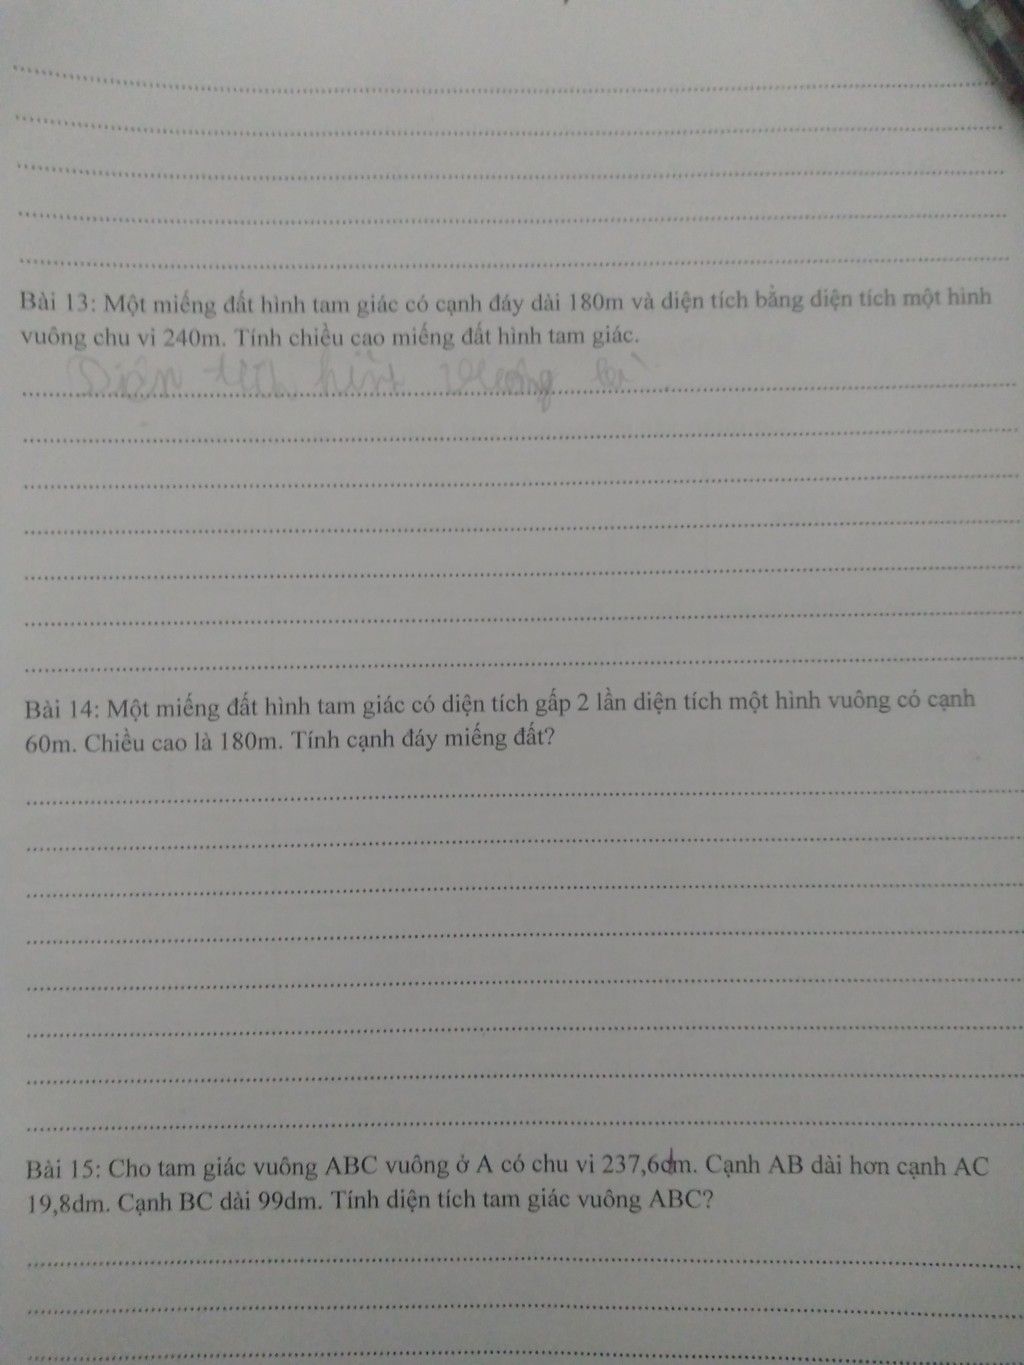 Bài 13: Một miếng đất hình tam giác có cạnh đáy dài 180m và diện tích bằng diện tích một hình
vuông chu vi 240m. Tính chiều cao miếng đất hình tam giác.
Diện tích hình vuông là
Bài 14: Một miếng đất hình tam giác có diện tích gấp 2 lần diện tích một hình vuông có cạnh
60m. Chiều cao là 180m. Tính cạnh đáy miếng đất?
Bài 15: Cho tam giác vuông ABC vuông ở A có chu vi 237,6dm. Cạnh AB dài hơn cạnh AC
19,8dm. Cạnh BC dài 99dm. Tính diện tích tam giác vuông ABC?